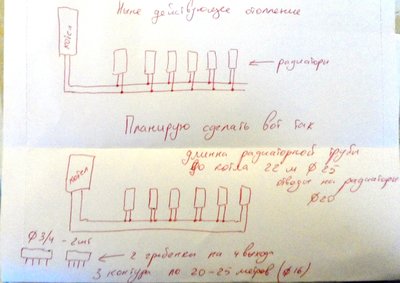 Ныне действующее отопление
котел
радиаторы
Планирую сделать вот так
котел
длинна радиаторной трубы
до котла 22 м Ф 25
отводы на радиаторы
Ф20
Ф 3/4 - 2 шт
2 гребенки на 4 выхода
3 контура по 20-25 метров (Ф16)